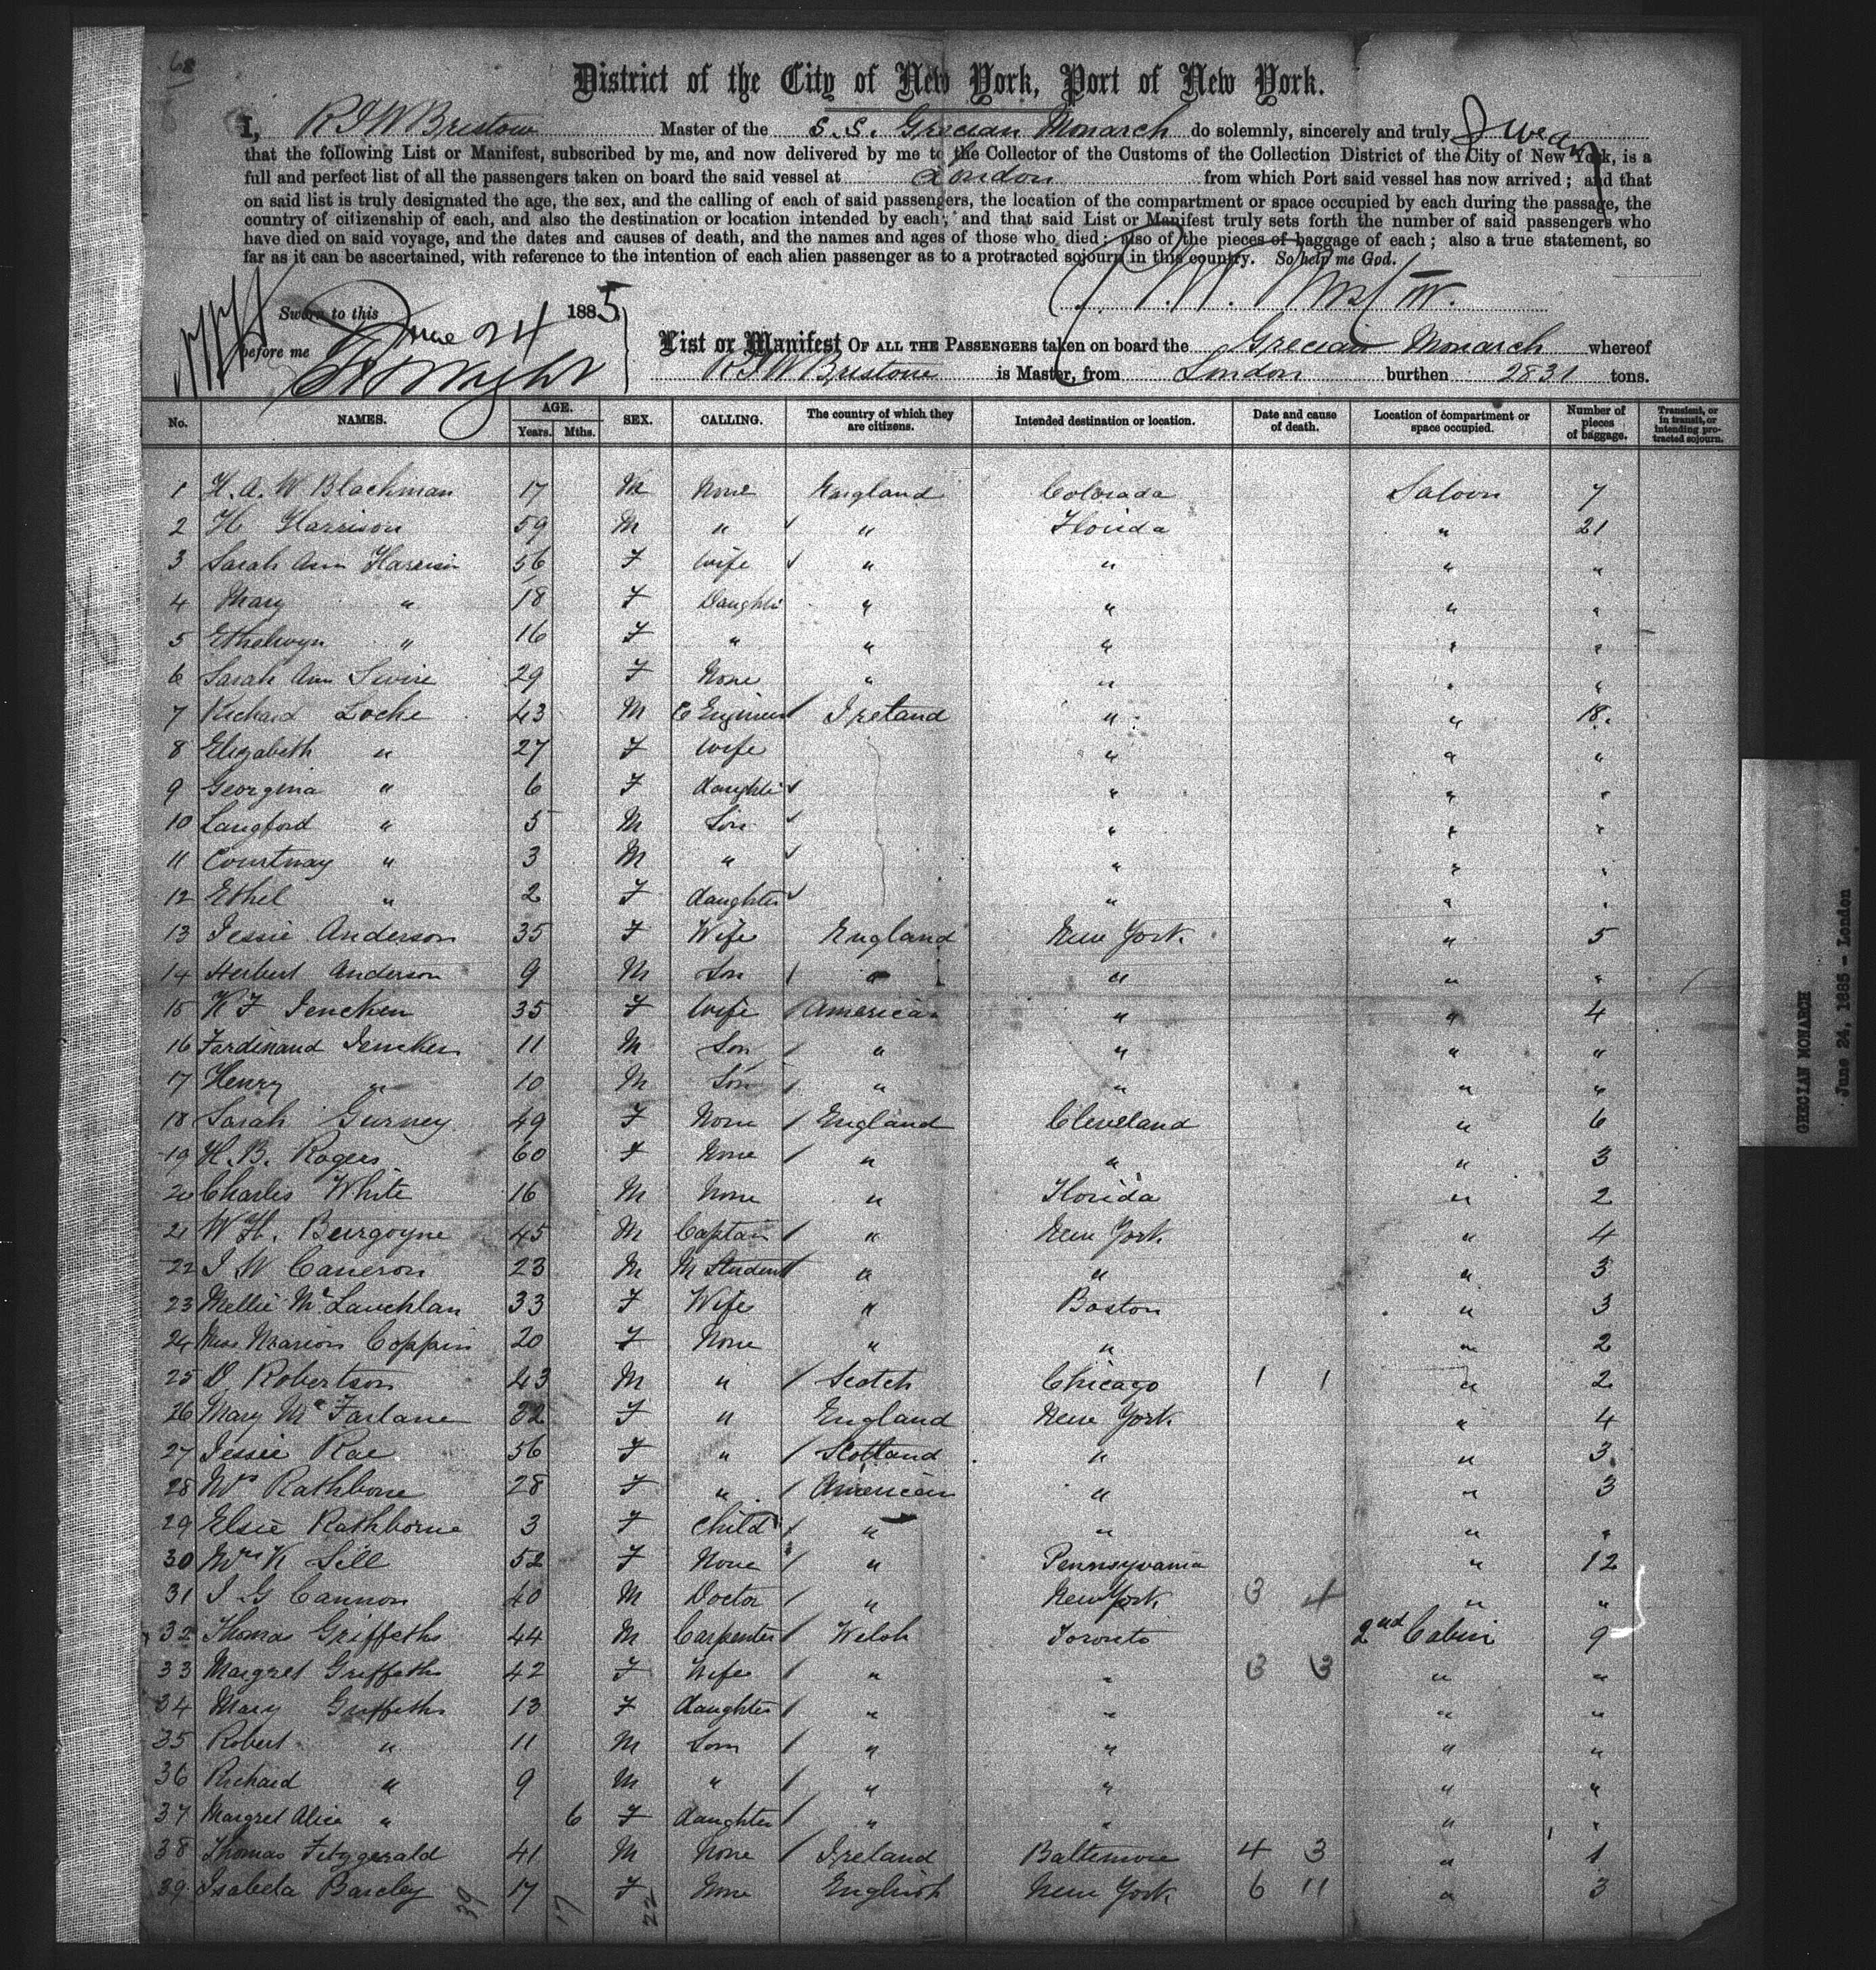 68
District of the City of New York, Port of New York.
I, R J W Bristow Master of the S.S. Grecian Monarch do solemnly, sincerely and truly Swear
that the following List or Manifest, subscribed by me, and now delivered by me to the Collector of the Customs of the Collection District of the City of New York, is a
full and perfect list of all the passengers taken on board the said vessel at London from which Port said vessel has now arrived; and that
on said list is truly designated the age, the sex, and the calling of each of said passengers, the location of the compartment or space occupied by each during the passage, the
country of citizenship of each, and also the destination or location intended by each; and that said List or Manifest truly sets forth the number of said passengers who
have died on said voyage, and the dates and causes of death, and the names and ages of those who died; also of the pieces of baggage of each; also a true statement, so
far as it can be ascertained, with reference to the intention of each alien passenger as to a protracted sojourn in this country. So help me God.
Sworn to this June 24 1885
before me
List or Manifest OF ALL THE PASSENGERS taken on board the Grecian Monarch whereof
R J W Bristow is Master, from London burthen 2831 tons.
No. NAMES. AGE. Years. Mths. SEX. CALLING. The country of which they are citizens. Intended destination or location. Date and cause of death. Location of compartment or space occupied. Number of pieces of baggage. Transient, or in transit, or intending protracted sojourn.
1 H. A. W Blachman 17 M None England Colorada Saloon 7
2 H Harrison 59 M " " Florida " 21
3 Sarah Ann Harrison 56 F Wife " " " "
4 Mary " 18 F Daughter " " " "
5 Ethelwyn " 16 F " " " " "
6 Sarah Ann 29 F None " " " "
7 Richard Locke 43 M C Engineer Ireland " " 18
8 Elizabeth " 27 F Wife " " "
9 Georgina " 6 F daughter " " "
10 Langford " 5 M Son " " "
11 Courtnay " 3 M " " " "
12 Ethel " 2 F daughter " " "
13 Jessie Anderson 35 F Wife England New York " 5
14 Herbert Anderson 9 M Son " " " "
15 K F Jencken 35 F Wife American " " 4
16 Ferdinand Jencken 11 M Son " " " "
17 Henry " 10 M Son " " " "
18 Sarah Gurney 49 F None England Cleveland " 6
19 H. B. Rogers 60 F None " " " 3
20 Charles White 16 M None " Florida " 2
21 W H. Burgoyne 45 M Captain " New York " 4
22 J W Cameron 23 M M Student " " " 3
23 Mellie McLauchlan 33 F Wife " Boston " 3
24 Miss Marion Coppin 20 F None " " " 2
25 D Robertson 43 M " Scotch Chicago 1 1 " 2
26 Mary McFarlane 32 F " England New York " 4
27 Jessie Rae 56 F " Scotland " " 3
28 Mrs Rathbone 28 F " American " " 3
29 Elsie Rathborne 3 F Child " " " "
30 Mrs K Sill 52 F None " Pennsyvania " 12
31 J G Cannon 40 M Doctor " New York 3 4 " "
32 Thomas Griffeths 44 M Carpenter Welsh Toronto 2nd Cabin 9
33 Margret Griffeths 42 F Wife " " 3 3 " "
34 Mary Griffeths 13 F daughter " " " "
35 Robert " 11 M Son " " " "
36 Richard " 9 M " " " " "
37 Margret Alice " 6 F daughter " " " "
38 Thomas Fitzgerald 41 M None Ireland Baltimore 4 3 " 1
39 Isabela Barcley 17 F None English New York 6 11 " 3
39 17 22
GRECIAN MONARCH
June 24, 1885 - London